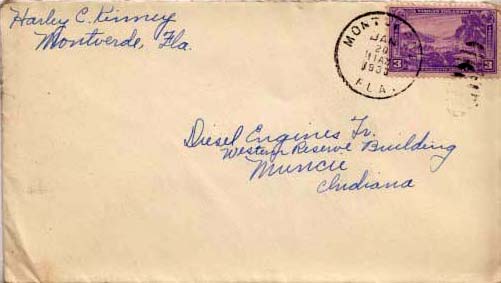 Harley C. Kinney
Montverde, Fla.
JAN
20
FLA.
3
3
Diesel Engines Tr.
Western Reserve Building
Muncie
Indiana